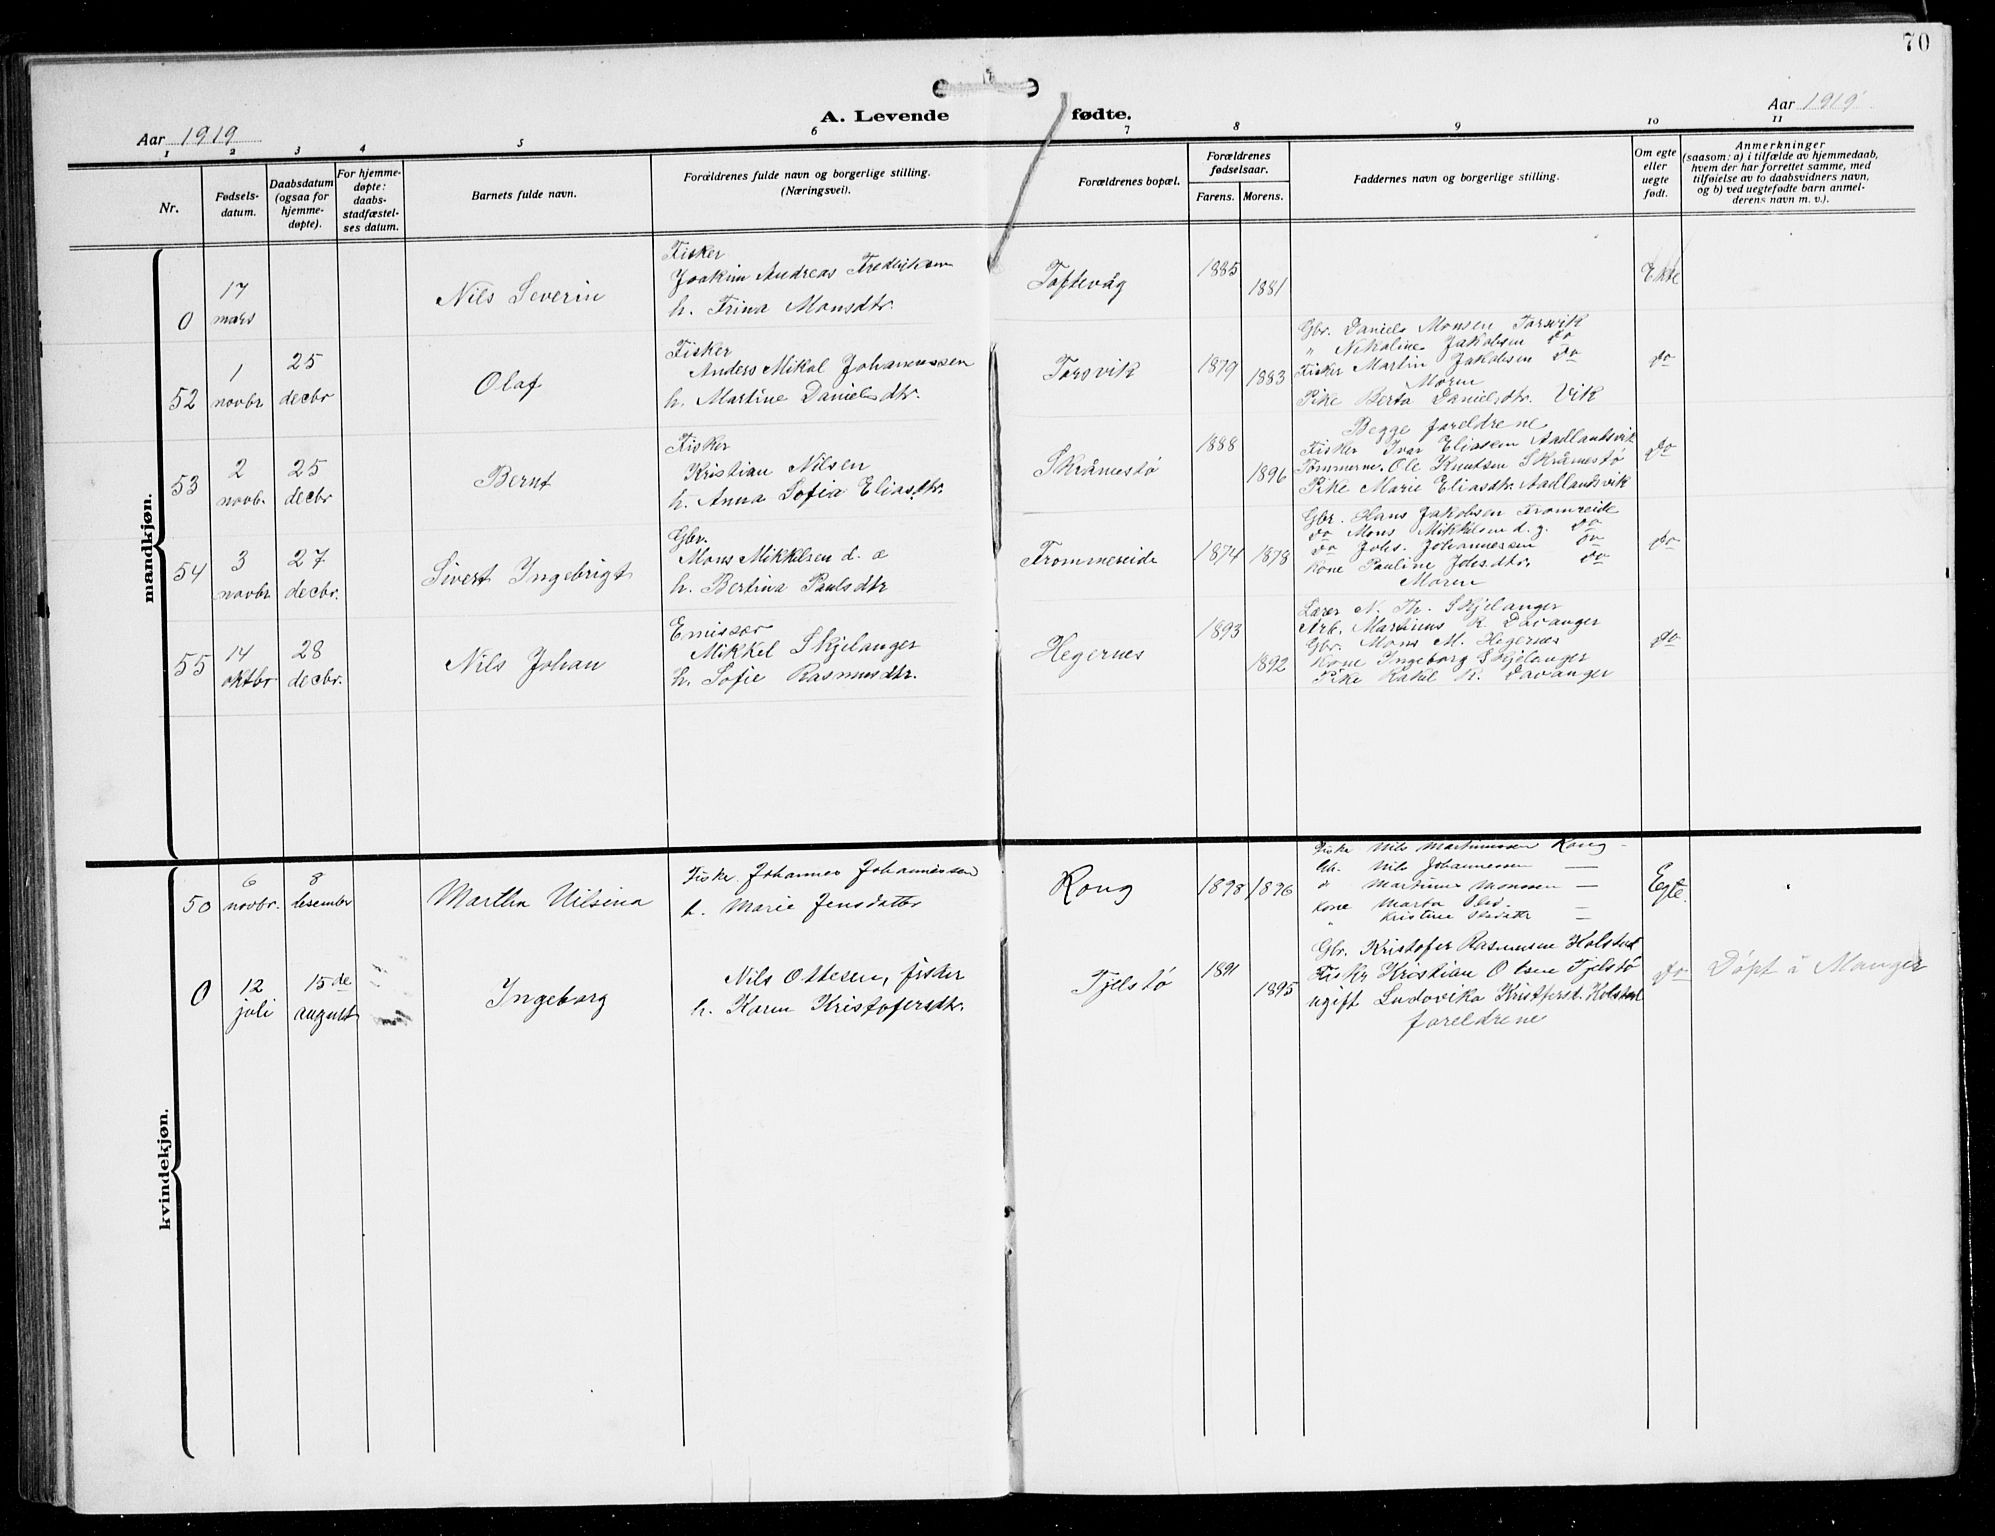 70
Aar 1919
A. Levende fødte.
Aar 1919
1 2 3 4 5 6 7 8 9 10 11
Nr.
Fødsels-
datum.
Daabsdatum
(ogsaa for
hjemme-
døpte).
For hjemme-
døpte:
daabs-
stadfæstel-
ses datum.
Barnets fulde navn.
Forældrenes fulde navn og borgerlige stilling.
(Næringsvei).
Forældrenes bopæl.
Forældrenes
fødselsaar.
Farens. Morens.
Faddernes navn og borgerlige stilling.
Om egte
eller
uegte
født.
Anmerkninger
(saasom: a) i tilfælde av hjemmedaab,
hvem der har forrettet samme, med
tilføielse av to daabsvidners navn,
og b) ved uegtefødte barn anmel-
derens navn m. v.).
mandkjøn.
0
17
mars
Nils Severin
Fisker
Joakim Andreas Fredriksen
h. Trina Monsdtr.
Toftevåg
1885
1881
Ekte
52
1
novbr
25
decbr
Olaf
Fisker
Anders Mikal Johannessen
h. Martine Danielsdtr.
Torsvik
1879
1883
Gbr. Daniels Monsen Torsvik
" Nikoline Jakobsen do
Fisker Martin Jakobsen do
Moren
Pike Berta Danielsdtr. Vik
do
53
2
novb.
25
decbr
Bernt
Fisker
Kristian Nilsen
h. Anna Sofia Eliasdtr.
Skråmestø
1888
1896
Begge foreldrene
Fisker Ivar Eliassen Aadlandsvik
Tømmerm. Ole Knutsen Skråmestø
Pike Marie Eliasdtr. Aadlandsvik
do
54
3
novbr
27
decbr.
Sivert Ingebrigt
Gbr.
Mons Mikkelsen d. æ
h. Bertina Paulsdtr
Trommereide
1874
1878
Gbr. Hans Jakobsen Tromreide
do Mons Mikkelsen d. y. do
do Johs. Johannessen do
Kone Pauline Johsdtr. do
Moren
do
55
14
oktbr
28
decbr.
Nils Johan
Emissær
Mikkel Skjelanger
h. Sofie Rasmusdtr.
Hegernes
1893
1892
Lærer N. Th. Skjelanger
Arb. Martinus R. Davanger
Gbr. Mons M. Hegernes
Kone Ingeborg Skjelanger
Pike Rakel R. Davanger
do
kvindekjøn.
50
6
novbr.
8
desember
Martha Nilsina
Fisker Johannes Johannessen
h. Marie Jensdatter
Rong
1898
1896
Fisker Nils Martinussen Rong
Nils Johannessen —
Martinus Monssen —
Kone Marta —
" Kristine —
Egte.
0
12
juli
15de
august
Ingeborg
Nils Ottesen, fisker
h. Karen Kristofersdtr.
Tjelstø
1891
1895
Gbr. Kristofer Rasmussen Holstad
Fisker Kristian Olsen Tjelstø
ugift Ludovika Kristfersd. Holstad
foreldrene
do
Døpt i Manger